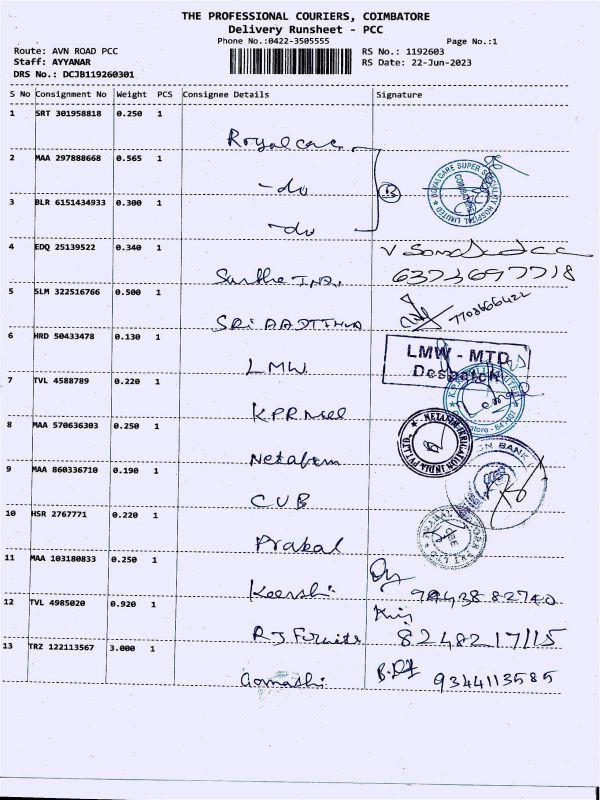 THE PROFESSIONAL COURIERS, COIMBATORE
Delivery Runsheet - PCC
Phone No.:0422-3505555
Page No.:1
Route: AVN ROAD PCC
RS No.: 1192603
Staff: AYYANAR
RS Date: 22-Jun-2023
DRS No.: DCJB119260301
S No Consignment No Weight PCS Consignee Details Signature
1 SRT 301958818 0.250 1
Royal care
2 MAA 297888668 0.565 1
- do
3 BLR 6151434933 0.300 1
- do
ROYAL CARE SUPER SPECIALITY HOSPITAL LIMITED
COIMBATORE
4 EDQ 25139522 0.340 1
5 SLM 322516766 0.500 1
SRI
6 HRD 50433478 0.130 1
LMW
LMW - MTD
Despatch
7 TVL 4588789 0.220 1
KPR Mill
8 MAA 570636303 0.250 1
Netafim
NETAFIM IRRIGATION INDIA PVT LTD
9 MAA 860336710 0.190 1
CUB
10 HSR 2767771 0.220 1
Prabal
11 MAA 103180833 0.250 1
12 TVL 4985020 0.920 1
8248217115
13 TRZ 122113567 3.000 1
9344113585